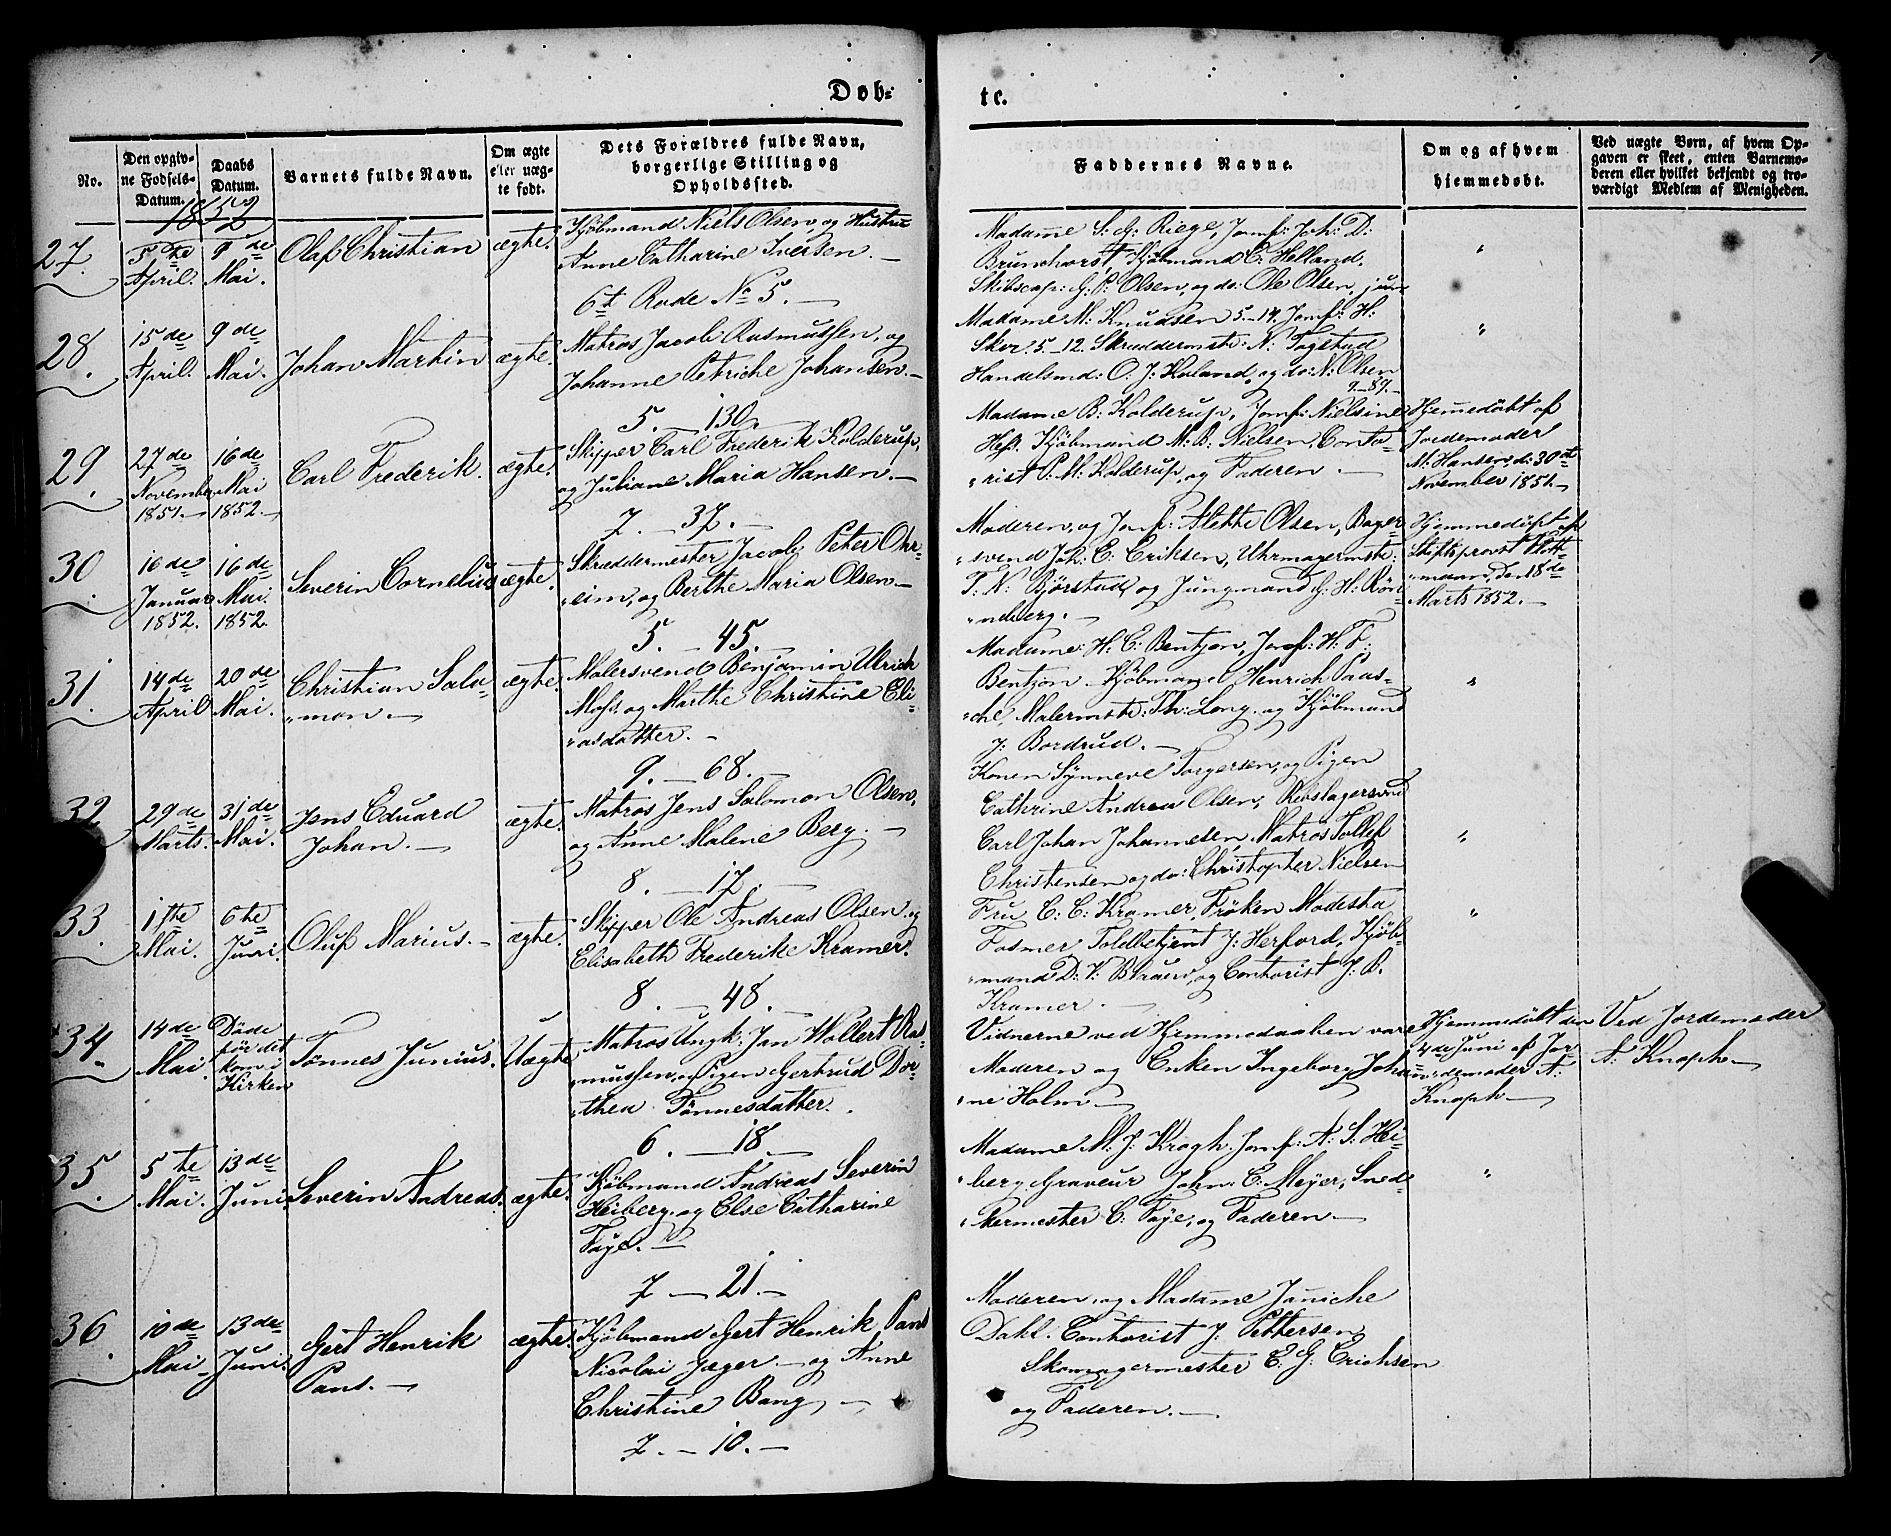 Døb-
te.
No.
Den opgiv-
ne Fødsels-
Datum.
Daabs
Datum.
Barnets fulde Navn.
Om ægte
eller uæg-
te født.
Dets Forældres fulde Navn,
borgerlige Stilling og
Opholdssted.
Faddernes Navne.
Om og af hvem
hjemmedøbt.
Ved uægte Børn, af hvem Op-
gaven er skeet, enten Barnemo-
deren eller hvilket bekjendt og tro-
værdigt Medlem af Menigheden.
1852
27.
5te
April.
9de
Mai.
Olaf Christian
ægte.
Kjøbmand Niels Olsen, og Hustru
Anne Catharine Iversen. —
6t Rode No 5. —
Madame S. G. Riege, Jomf: Joh: D:
Brunchorst Kjøbmand C. Helland.
Skibscap: G. P. Olsen, og do: Ole Olsen, jun:
"
28.
15de
April.
9de
Mai.
Johan Martin
ægte.
Matros Jacob Rasmussen, og
Johanne Petriche Johansen. —
5. 130.
Madame M: Knudsen 5–14. Jomf: H:
5–12. Skræddermstr: N: Fogstad
Handelsmd: O. J. Koland, og do: N: Olsen
9–89.
"
29.
27de
November
1851. —
16de
Mai
1852. —
Carl Frederik.
ægte.
Skipper Carl Frederik Kolderup,
og Juliane Maria Hansen. —
7. — 37. —
Madame B: Kolderup, Jomf: Nielsine
Kjøbmand M: B: Nielsen, Conto-
rist P: M: Kolderup, og Faderen. —
Hjemmedøbt af
Jordemoder
M: Hansen, d: 30t
November 1851. —
30
16de
Januar
1852.
16de
Mai.
1852.
Severin Cornelius
ægte.
Skræddermester Jacob Peter Ohr-
eim, og Berthe Maria Olsen. —
5. — 45. —
Moderen, og Jomf: Alette Olsen, Bager-
svend Joh: E. Eriksen, Uhrmagermstr:
T. N. Bjørstad, og Jungmand G: H. Røn-
neberg. —
Hjemmedøpt af
Stiftsprovst
den 18de
Marts 1852. —
31.
14de
April
20de
Mai.
Christian Salo-
mon. —
ægte.
Malersvend Benjamin Ulrich
Moss og Marthe Christine Eli-
asdatter. —
9. — 68. —
Madame H. C. Bentzon, Jomf: H: F:
Bentzon. Kjøbmand Henrich Paas-
che, Malermstr: Th: Long. og Kjøbmand
J: Bordrud. —
"
32
29de
Marts.
31de
Mai.
Jens Eduard
Johan. —
ægte.
Matros Jens Salomon Olsen,
og Anne Malene Berg. —
8. — 17. —
Konen Synneve Torgersen, og Pigen
Cathrine Andrea Olsen, Rebslagersvend
Carl Johan Johannesen, Matros Tollef
Christensen og do: Christopher Nielsen
"
33.
1ste
Mai.
6te
Juni.
Oluf Marius. —
ægte.
Skipper Ole Andreas Olsen og
Elisabeth Frederike Kramer.
8. — 48. —
Fru C: C: Kramer, Frøken Modesta
Fasmer Toldbetjent J: Herford, Kjøb-
mand D: V: Blaauw, og Contorist J. B.
Kramer. —
"
34.
14de
Mai.
Døde
før det
kom i
Kirken
Tønnes Junius.
Uægte
Matros Ungk: Jan Wollert Ra-
mussen, og Pigen Gertrud Dor-
thea Tønnesdatter.
6. — 18. —
Vidnerne ved Hjemmedaaben vare
Moderen og Enken Ingeborg Johan-
ne Holm. —
Hjemmedøbt den
4de Juni af Jor-
demoder A:
Knoph —
Ved Jordemoder
A: Knoph —
35.
5te
Mai.
13de
Juni.
Severin Andreas.
ægte.
Kjøbmand Andreas Severin
Heiberg, og Else Catharine
Faye. —
7 — 21. —
Madame M: J: Krogh. Jomf: A: S. Hei-
berg Graveur John: E: Meyer, Sned-
kermester C: Faye, og Faderen. —
"
36.
10de
Mai
13de
Juni.
Gert Henrik
Pans. —
ægte.
Kjøbmand Gert Henrik Pans
Nicolai Jæger. — og Anne
Christine Bang —
7. — 10. —
Moderen, og Madame Janiche
Dahl. Contorist J. Pettersen
Skomagermester E. G. Erichsen
og Faderen. —